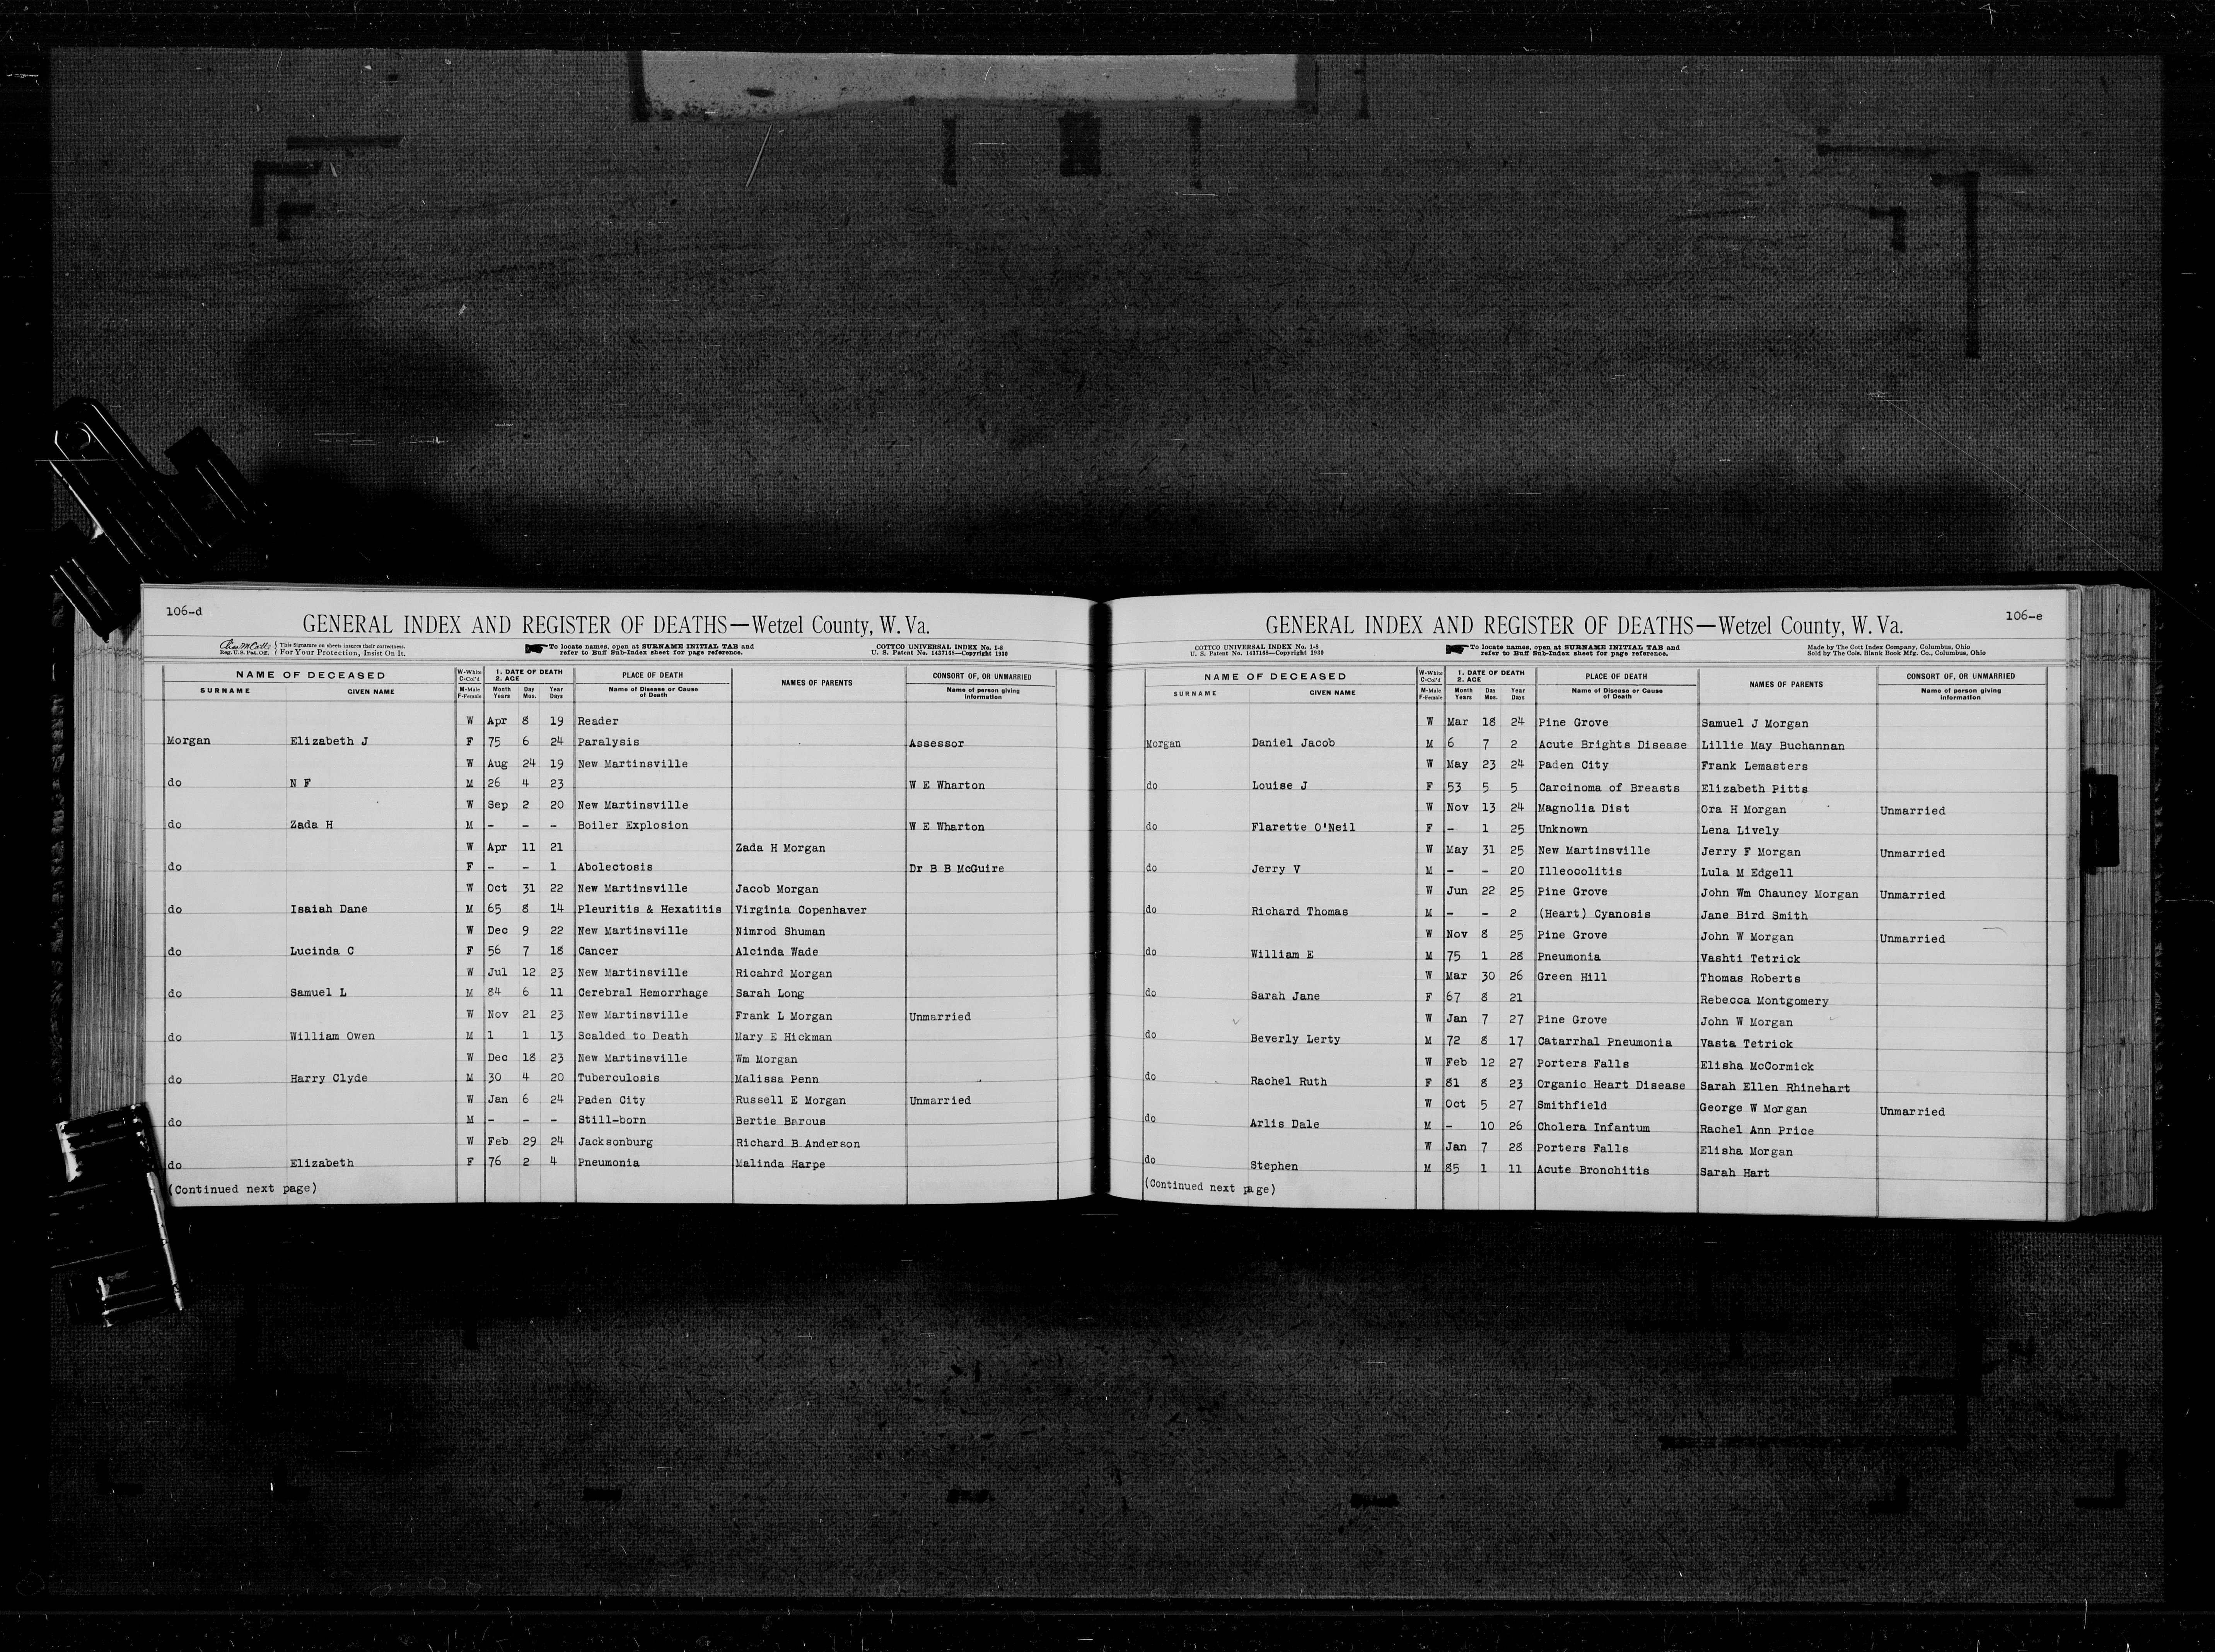 106-d
GENERAL INDEX AND REGISTER OF DEATHS—Wetzel County, W. Va.
Reg. U.S. Pat. Off. { This Signature on sheets insures their correctness. For Your Protection, Insist On It.
To locate names, open at SURNAME INITIAL TAB and refer to Buff Sub-Index sheet for page reference.
COTTCO UNIVERSAL INDEX No. 1-8
U. S. Patent No. 1437168—Copyright 1930
NAME OF DECEASED SURNAME GIVEN NAME W-White C-Col'd M-Male F-Female 1. DATE OF DEATH 2. AGE Month Years Day Mos. Year Days PLACE OF DEATH Name of Disease or Cause of Death NAMES OF PARENTS CONSORT OF, OR UNMARRIED Name of person giving information
W Apr 8 19 Reader
Morgan Elizabeth J F 75 6 24 Paralysis Assessor
W Aug 24 19 New Martinsville
do N F M 26 4 23 W E Wharton
W Sep 2 20 New Martinsville
do Zada H M - - - Boiler Explosion W E Wharton
W Apr 11 21 Zada H Morgan
do F - - 1 Abolectosis Dr B B McGuire
W Oct 31 22 New Martinsville Jacob Morgan
do Isaiah Dane M 65 8 14 Pleuritis & Hexatitis Virginia Copenhaver
W Dec 9 22 New Martinsville Nimrod Shuman
do Lucinda C F 56 7 18 Cancer Alcinda Wade
W Jul 12 23 New Martinsville Ricahrd Morgan
do Samuel L M 84 6 11 Cerebral Hemorrhage Sarah Long
W Nov 21 23 New Martinsville Frank L Morgan Unmarried
do William Owen M 1 1 13 Scalded to Death Mary E Hickman
W Dec 18 23 New Martinsville Wm Morgan
do Harry Clyde M 30 4 20 Tuberculosis Malissa Penn
W Jan 6 24 Paden City Russell E Morgan Unmarried
do M - - - Still-born Bertie Barcus
W Feb 29 24 Jacksonburg Richard B Anderson
do Elizabeth F 76 2 4 Pneumonia Malinda Harpe
(Continued next page)
106-e
GENERAL INDEX AND REGISTER OF DEATHS—Wetzel County, W. Va.
COTTCO UNIVERSAL INDEX No. 1-8
U. S. Patent No. 1437168—Copyright 1930
To locate names, open at SURNAME INITIAL TAB and refer to Buff Sub-Index sheet for page reference.
Made by The Cott Index Company, Columbus, Ohio
Sold by The Cols. Blank Book Mfg. Co., Columbus, Ohio
NAME OF DECEASED SURNAME GIVEN NAME W-White C-Col'd M-Male F-Female 1. DATE OF DEATH 2. AGE Month Years Day Mos. Year Days PLACE OF DEATH Name of Disease or Cause of Death NAMES OF PARENTS CONSORT OF, OR UNMARRIED Name of person giving information
W Mar 18 24 Pine Grove Samuel J Morgan
Morgan Daniel Jacob M 6 7 2 Acute Brights Disease Lillie May Buchannan
W May 23 24 Paden City Frank Lemasters
do Louise J F 53 5 5 Carcinoma of Breasts Elizabeth Pitts
W Nov 13 24 Magnolia Dist Ora H Morgan Unmarried
do Flarette O'Neil F - 1 25 Unknown Lena Lively
W May 31 25 New Martinsville Jerry F Morgan Unmarried
do Jerry V M - - 20 Illeocolitis Lula M Edgell
W Jun 22 25 Pine Grove John Wm Chauncy Morgan Unmarried
do Richard Thomas M - - 2 (Heart) Cyanosis Jane Bird Smith
W Nov 8 25 Pine Grove John W Morgan Unmarried
do William E M 75 1 28 Pneumonia Vashti Tetrick
W Mar 30 26 Green Hill Thomas Roberts
do Sarah Jane F 67 8 21 Rebecca Montgomery
W Jan 7 27 Pine Grove John W Morgan
do Beverly Lerty M 72 8 17 Catarrhal Pneumonia Vasta Tetrick
W Feb 12 27 Porters Falls Elisha McCormick
do Rachel Ruth F 81 8 23 Organic Heart Disease Sarah Ellen Rhinehart
W Oct 5 27 Smithfield George W Morgan Unmarried
do Arlis Dale M - 10 26 Cholera Infantum Rachel Ann Price
W Jan 7 28 Porters Falls Elisha Morgan
do Stephen M 85 1 11 Acute Bronchitis Sarah Hart
(Continued next page)